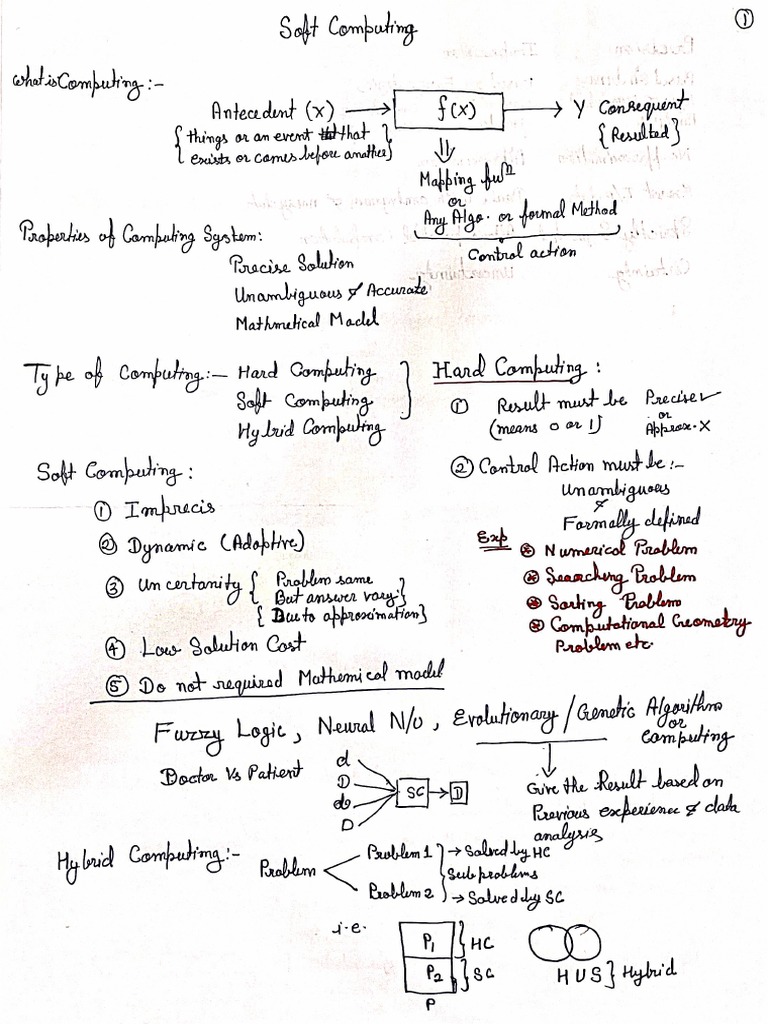 Soft Computing
1
What is Computing :-
Antecedent (x) → f(x) → Y Consequent
{ things or an event that
exists or comes before another}
{Resulted}
Mapping fuⁿ
or
Any Algo. or formal Method
Control action
Properties of Computing System:
Precise Solution
Unambiguous & Accurate
Mathmetical Model
Type of Computing :- Hard Computing
Soft Computing
Hybrid Computing
Hard Computing :
① Result must be Precise ✓
(means 0 or 1) or
Approx. X
② Control Action must be :-
Unambiguous
&
Formally defined
Exp ⊛ Numerical Problem
⊛ Searching Problem
⊛ Sorting Problem
⊛ Computational Geometry
Problem etc.
Soft Computing :
① Imprecis
② Dynamic (Adoptive)
③ Uncertanity { Problem same
But answer vary }
{ Due to approximation}
④ Low Solution Cost
⑤ Do not required Mathemical model
Fuzzy Logic, Neural N/w, Evolutionary / Genetic Algorithm
or
Computing
Doctor Vs Patient
d
D
d
D
SC → D
Give the Result based on
Previous experience & data
analysis
Hybrid Computing :-
Problem
Problem 1 → Solved by HC
Sub problems
Problem 2 → Solved by SC
i.e.
P₁ } HC
P₂ } SC
P
H U S } Hybrid